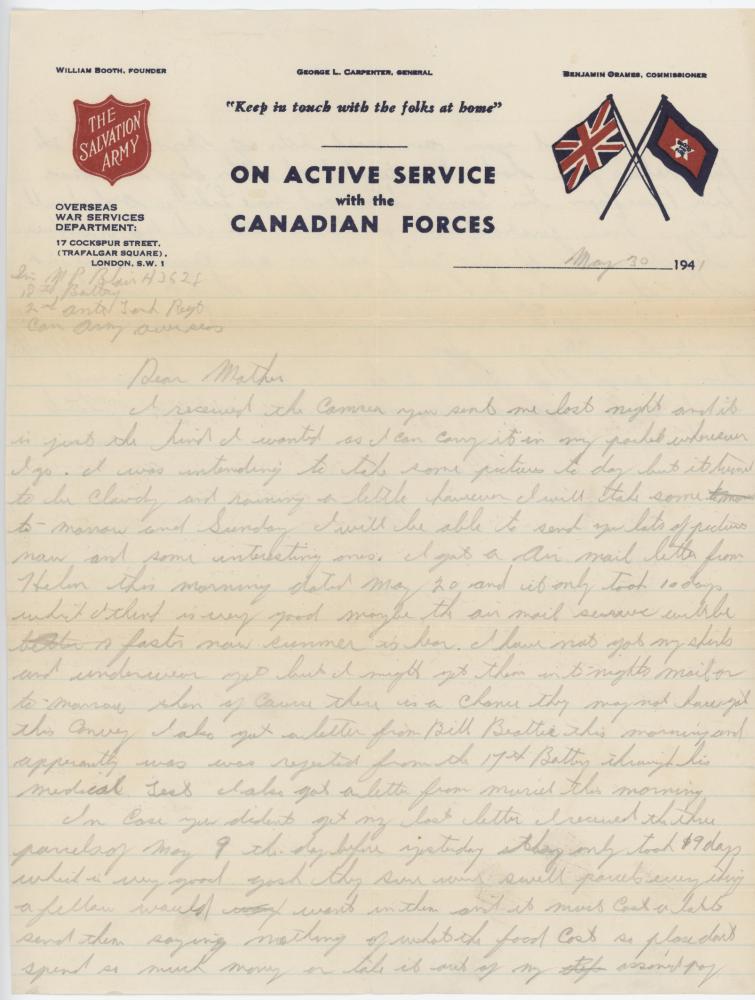 WILLIAM BOOTH, FOUNDER
GEORGE L. CARPENTER, GENERAL
BENJAMIN ORAMES, COMMISSIONER
THE
SALVATION
ARMY
"Keep in touch with the folks at home"
ON ACTIVE SERVICE
with the
CANADIAN FORCES
OVERSEAS
WAR SERVICES
DEPARTMENT:
17 COCKSPUR STREET,
(TRAFALGAR SQUARE),
LONDON, S.W. 1
May 30 1941
M P Blair H3628
18th Battery
2nd anti Tank Regt
Can Army overseas
Dear Mother
I received the Camrea you sent me last night and it
is just the kind I wanted as I can carry it in my pocket wherever
I go. I was intending to take some pictures to day but it turned
to be cloudy and raining a little however I will take some
to-morrow and Sunday I will be able to send you lots of pictures
now and some interesting ones. I got a Air mail letter from
Helen this morning dated May 20 and it only took 10 days
which I think is very good maybe the air mail service will be
faster now summer is hear. I have not got my shirts
and underwear yet but I might get them in to-nights mail or
to-morrow then of Course there is a chance they may not have got
this Convoy I also got a letter from Bill Beattie this morning and
apperantly was was rejected from the 17th Battery through his
medical Test I also got a letter from muriel this morning
In Case you dident get my last letter I received the three
parcels of May 9 the day before yesterday they only took 19 days
which is very good gosh they sure were swell parcels every thing
a fellow would want in them and it must Cost a lot to
send them saying nothing of what the food Cost so please dont
spend so much money or take it out of my assigned pay